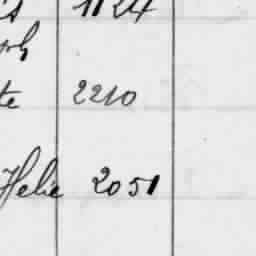 1124
te 2210
Helie 2051